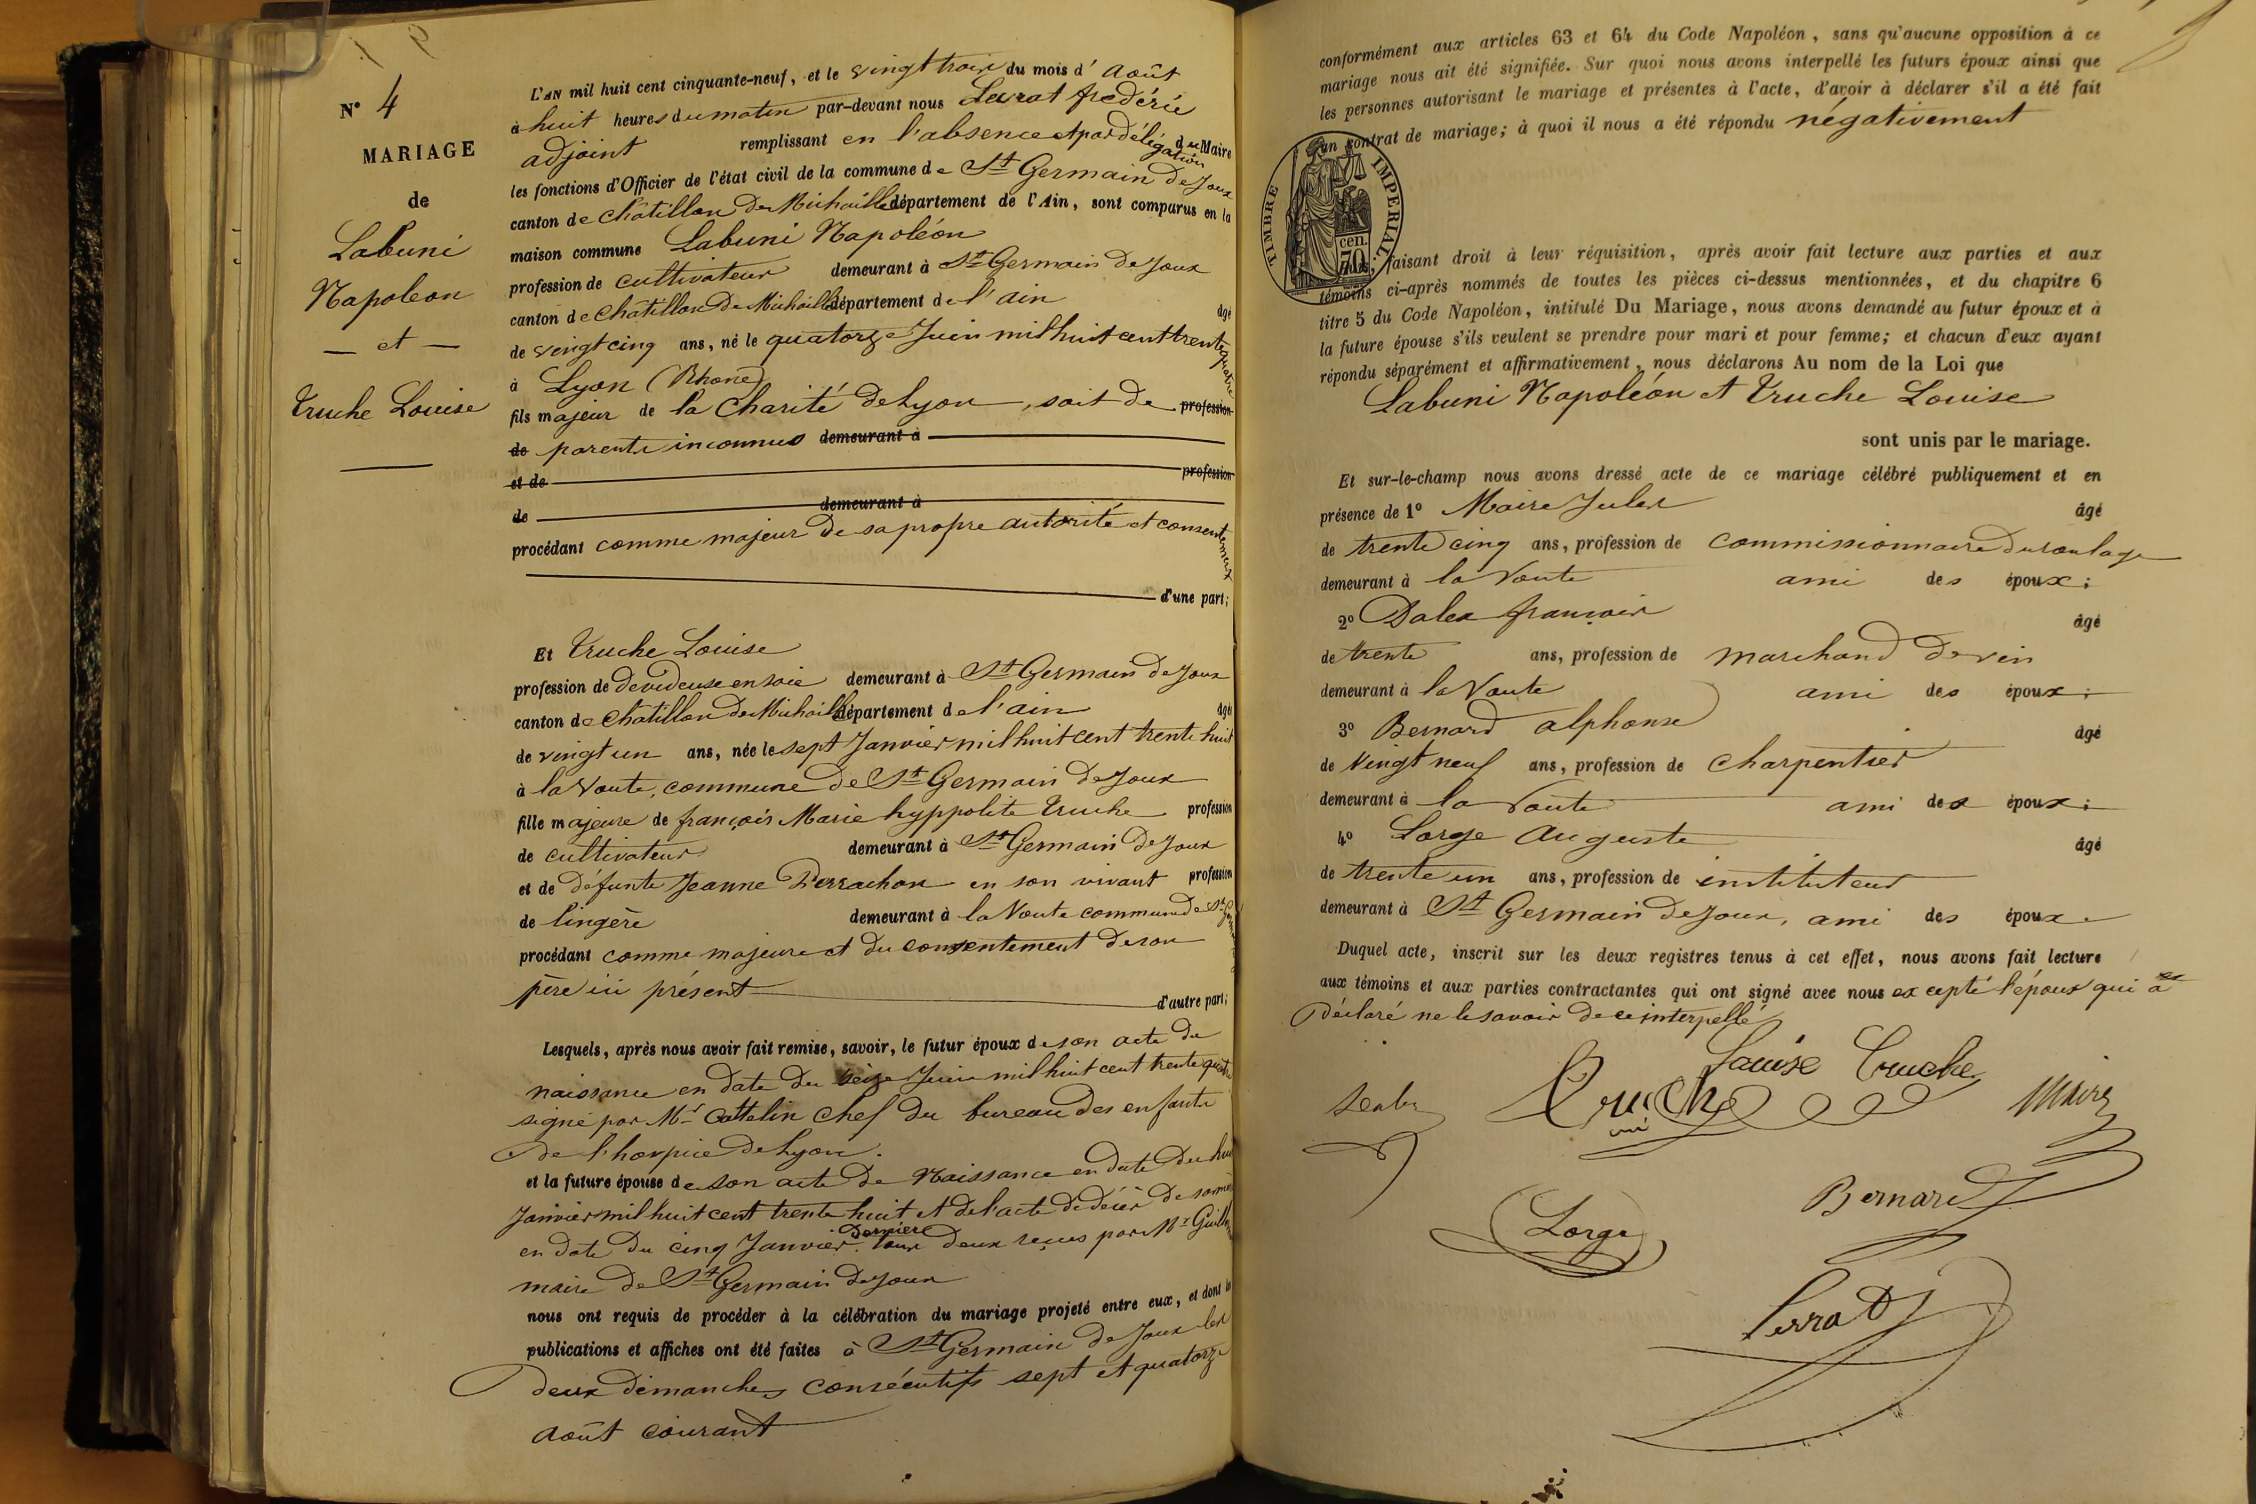 N° 4
MARIAGE
de
Labuni
Napoleon
— et —
Truche Louise
L'AN mil huit cent cinquante-neuf, et le vingt trois du mois d' Août
à huit heures du matin par-devant nous Levrat frédéric
adjoint remplissant en l'absence et par délégation du Maire
les fonctions d'Officier de l'état civil de la commune de St Germain de Joux
canton de Châtillon de Michaille département de l'Ain, sont comparus en la
maison commune Labuni Napoléon
profession de cultivateur demeurant à St Germain de Joux
canton de Châtillon de Michaille département de l'ain âgé
de vingt cinq ans, né le quatorze Juin mil huit cent trente quatre
à Lyon (Rhone)
fils majeur de la Charité de Lyon, soit de profession
de parents inconnus demeurant à
et de profession
de demeurant à
procédant comme majeur de sa propre autorité et consentement
d'une part;
Et Truche Louise
profession de devideuse en soie demeurant à St Germain de Joux
canton de Châtillon de Michaille département de l'ain âgée
de vingt un ans, née le sept Janvier mil huit cent trente huit
à la Voute, commune de St Germain de Joux
fille majeure de françois Marie hyppolite Truche profession
de cultivateur demeurant à St Germain de Joux
et de défunte Jeanne Perrachon en son vivant profession
de lingère demeurant à la Voute commune de St
procédant comme majeure et du consentement de son
père ici présent d'autre part;
Lesquels, après nous avoir fait remise, savoir, le futur époux de son acte de
naissance en date du seize Juin mil huit cent trente quatre
signé par Mr Cattelin chef du bureau des enfants
de l'hospice de Lyon.
et la future épouse de son acte de Naissance en date du huit
Janvier mil huit cent trente huit et de l'acte de décès de sa mère
en date du cinq Janvier dernière tous deux reçus par Mr
maire de St Germain de Joux
nous ont requis de procéder à la célébration du mariage projeté entre eux, et dont les
publications et affiches ont été faites à St Germain de Joux les
deux dimanches consécutifs sept et quatorze
Août courant
conformément aux articles 63 et 64 du Code Napoléon, sans qu'aucune opposition à ce
mariage nous ait été signifiée. Sur quoi nous avons interpellé les futurs époux ainsi que
les personnes autorisant le mariage et présentes à l'acte, d'avoir à déclarer s'il a été fait
un contrat de mariage; à quoi il nous a été répondu négativement
TIMBRE IMPERIAL
70 cen.
faisant droit à leur réquisition, après avoir fait lecture aux parties et aux
témoins ci-après nommés de toutes les pièces ci-dessus mentionnées, et du chapitre 6
titre 5 du Code Napoléon, intitulé Du Mariage, nous avons demandé au futur époux et à
la future épouse s'ils veulent se prendre pour mari et pour femme; et chacun d'eux ayant
répondu séparément et affirmativement, nous déclarons Au nom de la Loi que
Labuni Napoléon et Truche Louise
sont unis par le mariage.
Et sur-le-champ nous avons dressé acte de ce mariage célébré publiquement et en
présence de 1° Maire Jules âgé
de trente cinq ans, profession de commissionnaire du roulage
demeurant à la Voute ami des époux;
2° françois âgé
de trente ans, profession de marchand de vin
demeurant à la Voute ami des époux;
3° Bernard alphonse âgé
de Vingt neuf ans, profession de charpentier
demeurant à la Voute ami des époux;
4° Lorge Auguste âgé
de trente un ans, profession de instituteur
demeurant à St Germain de Joux, ami des époux
Duquel acte, inscrit sur les deux registres tenus à cet effet, nous avons fait lecture
aux témoins et aux parties contractantes qui ont signé avec nous excepté l'époux qui a
déclaré ne le savoir de ce interpellé
Louise Truche
Truche
Maire
Bernard
Lorge